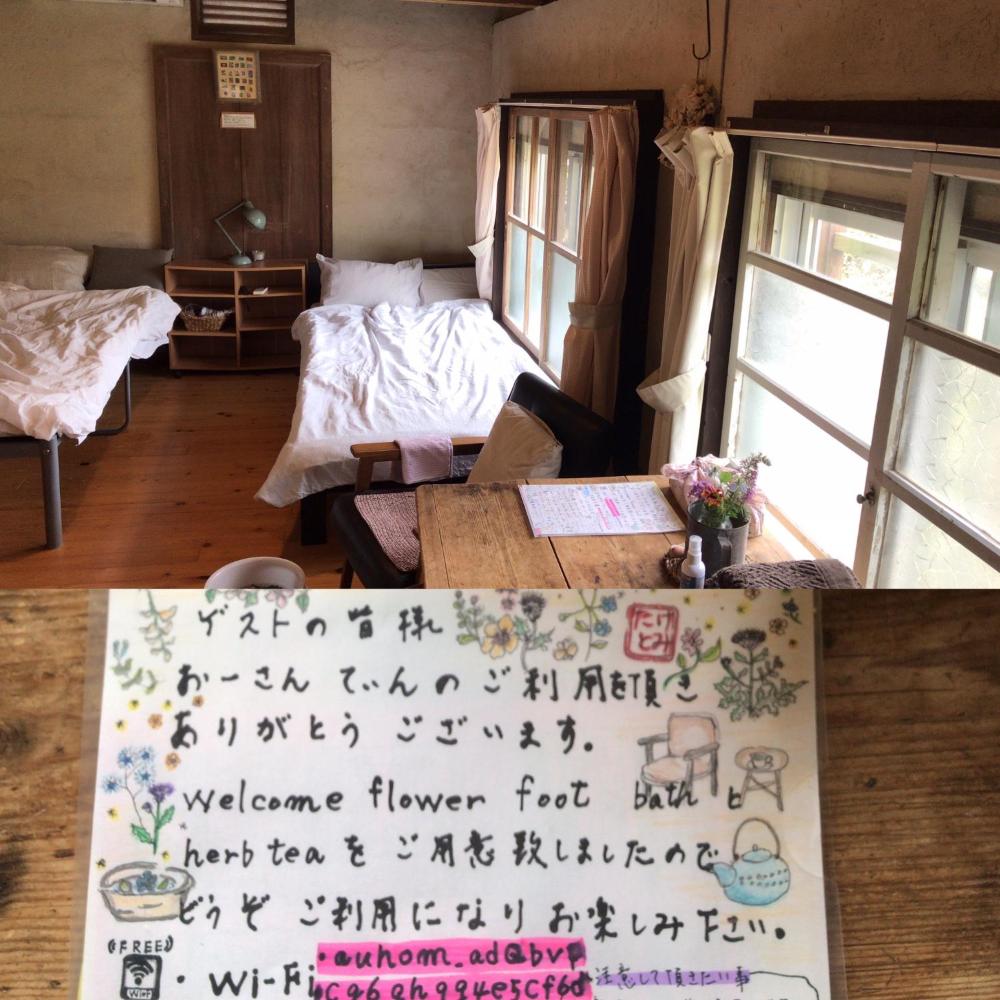 ゲストの皆様
たけ
とみ
おーさんてぃんのご利用を頂き
ありがとうございます。
welcome flower foot bath と
herb tea を ご用意致しましたので
どうぞ ご利用になり お楽しみ下さい。
(FREE)
Wi-Fi
・Wi-Fi
・auhom_ad@bvp
cg6qh994e5cf6d
注意して頂きたい事